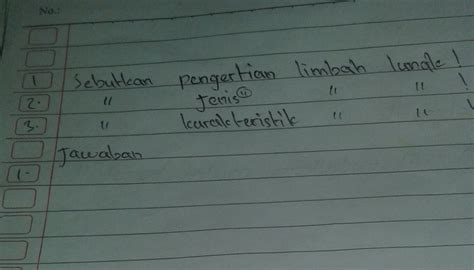 No.:
1 Sebutkan pengertian limbah lunak !
2. " Jenis" " " !
3. " karakteristik " " !
Jawaban
1.